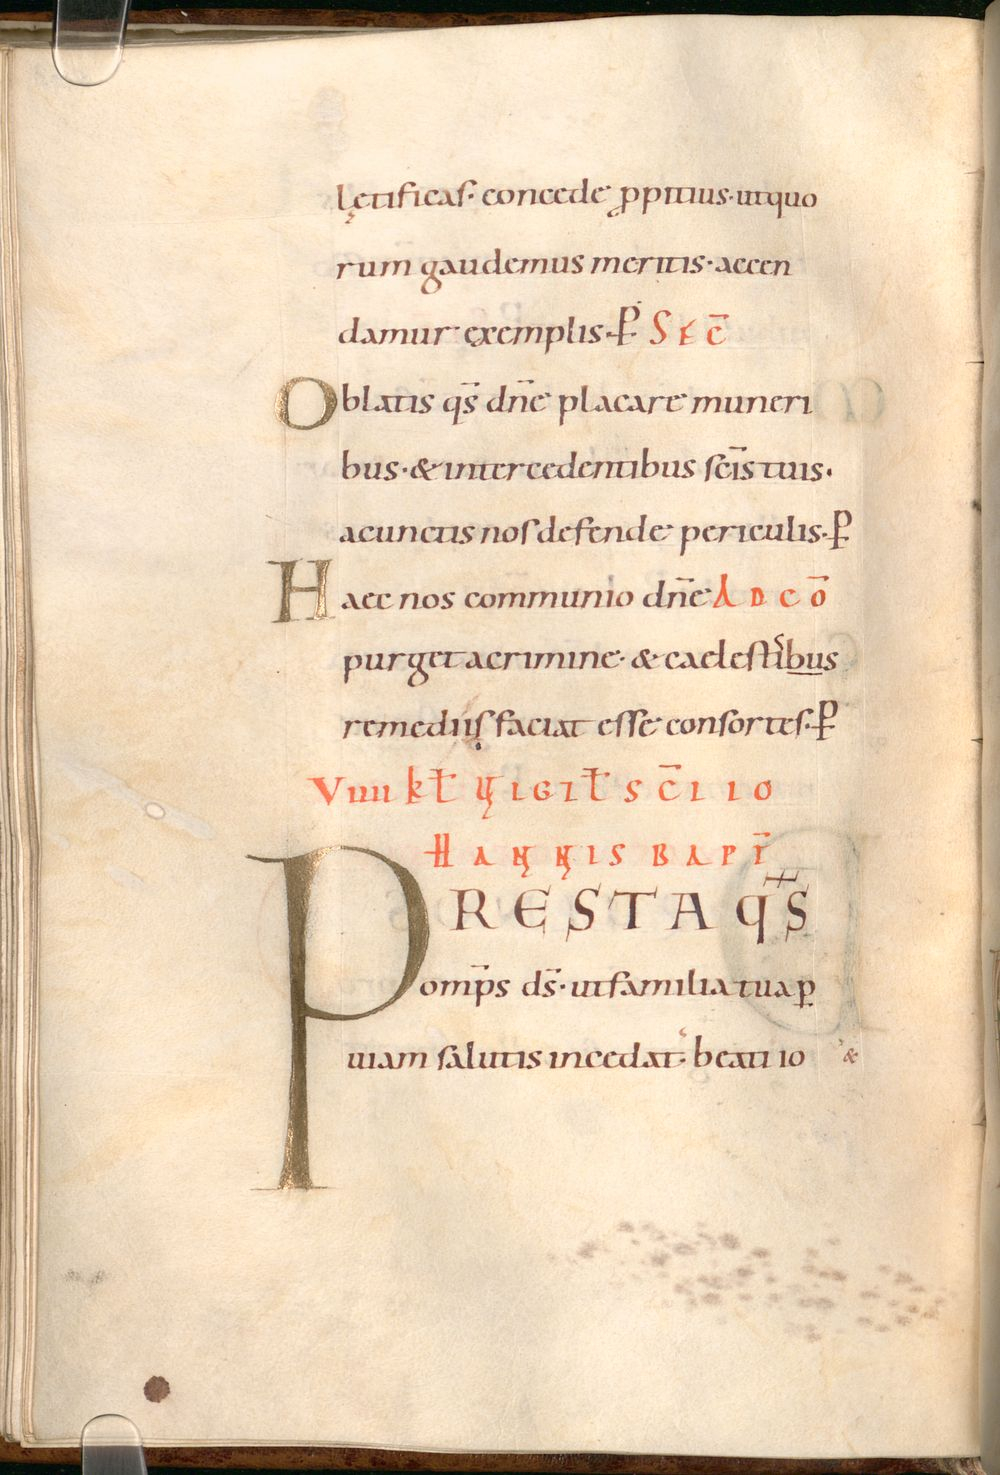 lętificas· concede ꝓpitius· utquo
rum gaudemus meritis· accen
damur exemplis· P̄ SEC̄
Oblatis qs̄ dn̄e placare muneri
bus· & intercedentibus sc̄is tuis·
acunctis nos defende periculis· P̄
Haec nos com̄munio dn̄e AD CŌ
purget acrimine· & caelestibus
remediis faciat esse consortes· P̄
VIIII KL̄ IUL̄ UIGIL̄ SC̄I IO
HANNIS BAPT̄
PRESTA qs̄
omp̄s ds̄· utfamilia tua ꝑ
uiam salutis incedat· & beati io